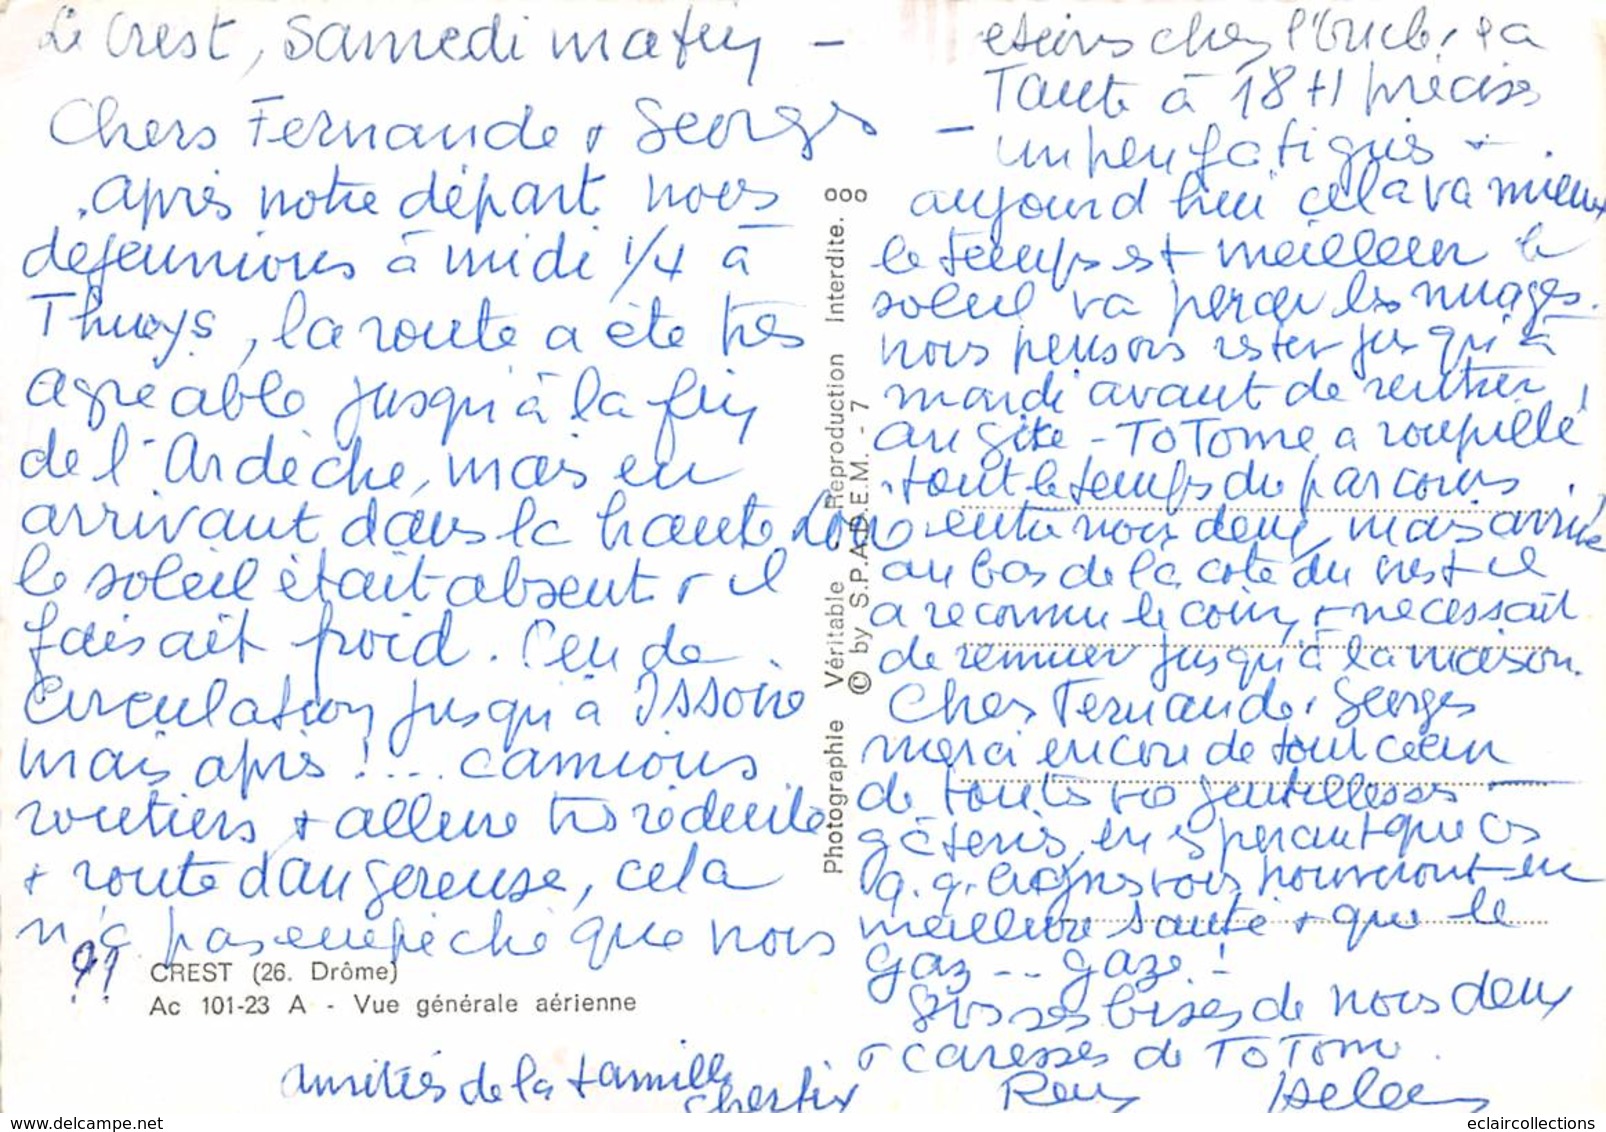 Le Crest, Samedi matin -
Chers Fernande + Georges
après notre départ nous
déjeunions à midi 1/4 à
Thueys, la route a été très
agréable jusqu'à la fin
de l'Ardèche, mais en
arrivant dans la haute Loire
le soleil était absent + il
faisait froid. Peu de
circulation jusqu'à Issoire
mais après !... camions
routiers + allure très réduite
+ route dangereuse, cela
n'a pas empêché que nous
étions chez l'Oncle + la
Tante à 18 H précises
- un peu fatigués -
aujourd'hui cela va mieux
le temps est meilleur le
soleil va percer les nuages.
nous pensons rester jusqu'à
mardi avant de rentrer
au gîte - ToTome a roupillé
tout le temps du parcours
entre nous deux, mais arrivé
au bas de la côte du Crest il
a reconnu le coin, + ne cessait
de remuer jusqu'à la maison.
Chers Fernande, Georges
merci encore de tout coeur
de toutes vos gentillesses -
gâteries, en espérant que ces
q.q. lignes vous trouveront en
meilleure santé + que le
gaz -- gaze !
Grosses bises de nous deux
+ caresses de ToTome.
Remy Helen
amitiés de la famille
??
CREST (26. Drôme)
Ac 101-23 A - Vue générale aérienne
Photographie Véritable - Reproduction Interdite.
© by S.P.A.D.E.M. - 7
www.delcampe.net
eclaircollections